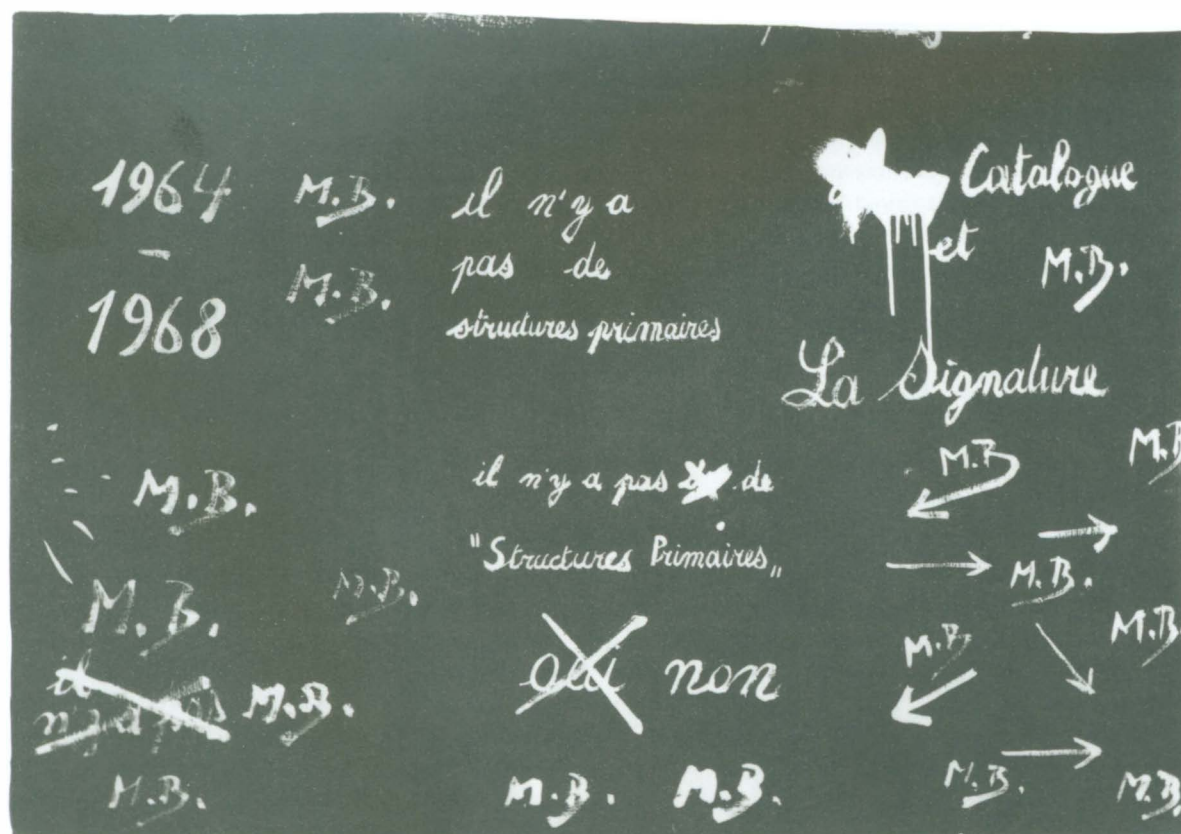 1964
–
1968
M.B.
M.B.
il n'y a
pas de
structures primaires
Catalogue
et
M.B.
La Signature
M.B.
M.B.
M.B.
il
n'y a pas
M.B.
M.B.
il n'y a pas de
"Structures Primaires„
oui non
M.B. M.B.
M.B
M.B
M.B.
M.B
M.B
M.B.
M.B